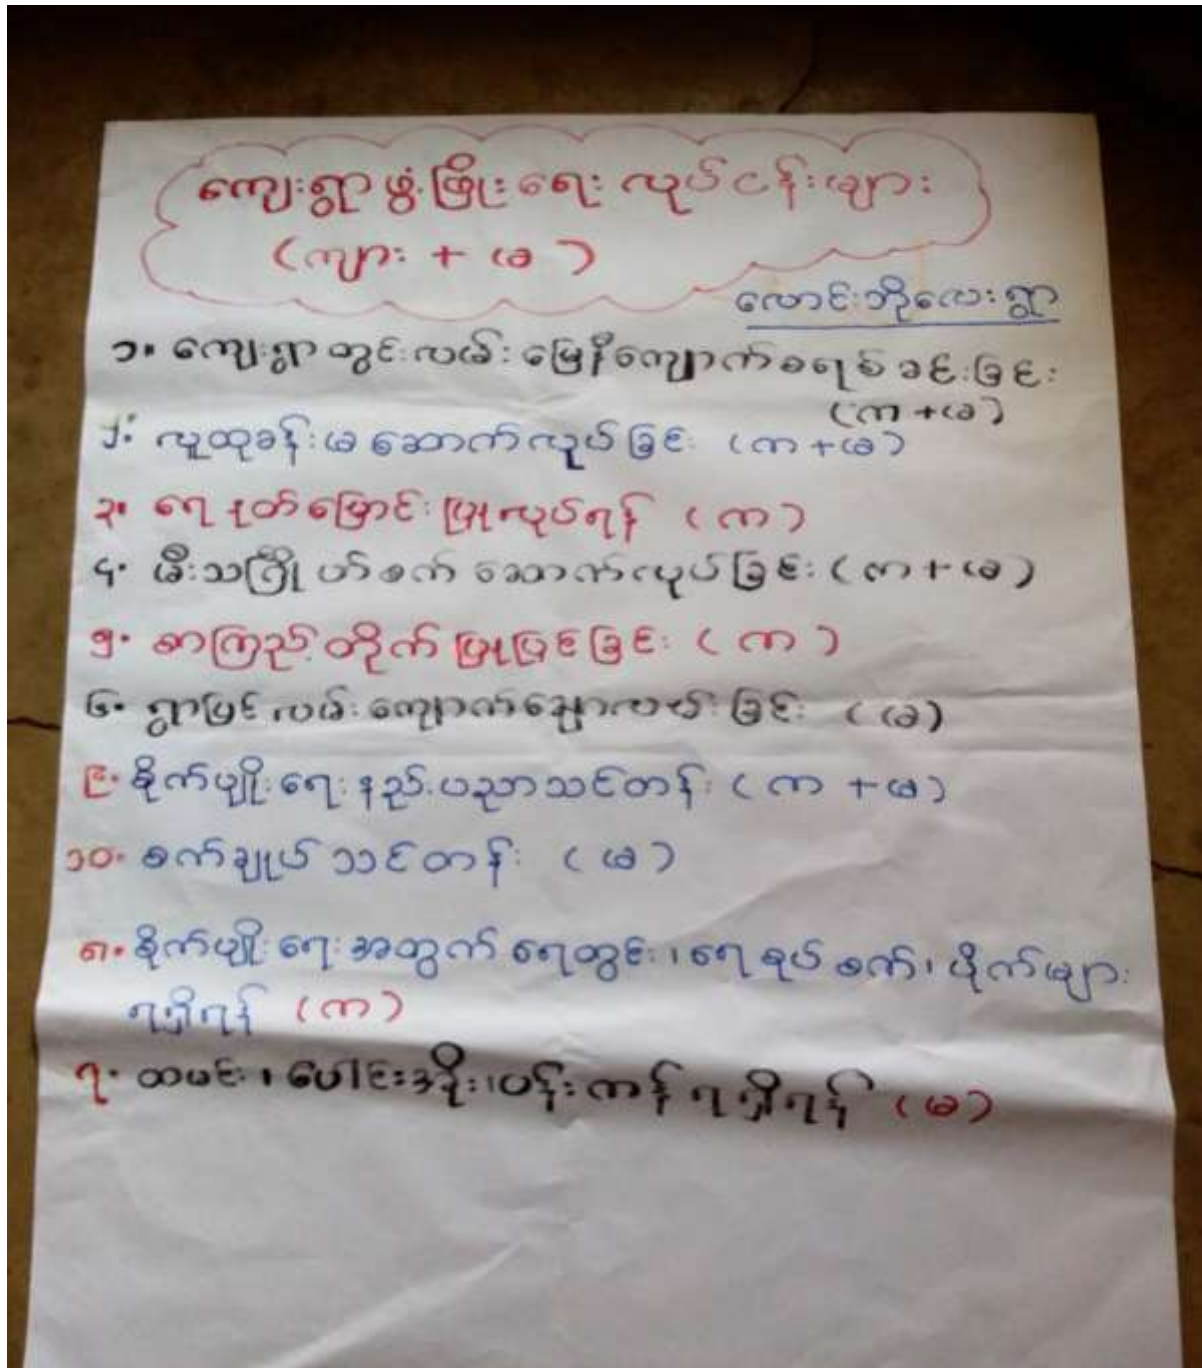 ကျေးရွာဖွံ့ဖြိုးရေး လုပ်ငန်းများ
(ကျား + မ)
လောင်းဘိုလေးရွာ
၁။ ကျေးရွာတွင်းလမ်း မြေနီကျောက်စရစ်ခင်းခြင်း
(ကျ + မ)
၂။ လူထုခန်းမ ဆောက်လုပ်ခြင်း (ကျ + မ)
၃။ ရေနုတ်မြောင်း ပြုလုပ်ရန် (ကျ)
၄။ မီးသင်္ဂြိုဟ်စက် ဆောက်လုပ်ခြင်း (ကျ + မ)
၅။ စာကြည့်တိုက် ပြုပြင်ခြင်း (ကျ)
၆။ ရွာပြင်လမ်း ကျောက်ချောလမ်းခြင်း (မ)
၉။ စိုက်ပျိုးရေးနည်းပညာသင်တန်း (ကျ + မ)
၁၀။ စက်ချုပ်သင်တန်း (မ)
၈။ စိုက်ပျိုးရေးအတွက် ရေတွင်း၊ ရေစုပ်စက်၊ ပိုက်များ
ရရှိရန် (ကျ)
၇။ ထမင်း၊ ပေါင်းအိုး၊ ပန်းကန် ရရှိရန် (မ)